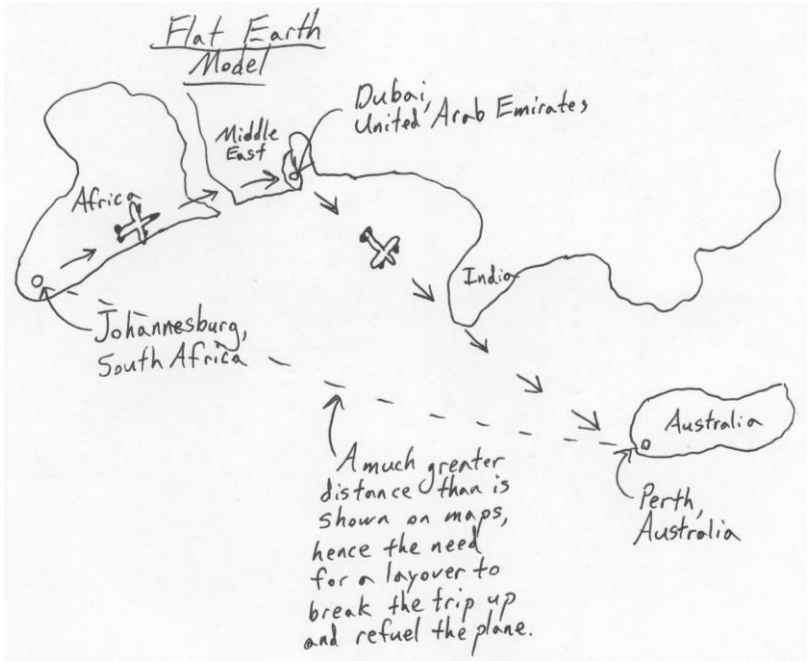 Flat Earth
Model
Dubai,
United Arab Emirates
Middle
East
Africa
India
Johannesburg,
South Africa
Australia
A much greater
distance than is
shown on maps,
hence the need
for a layover to
break the trip up
and refuel the plane.
Perth,
Australia